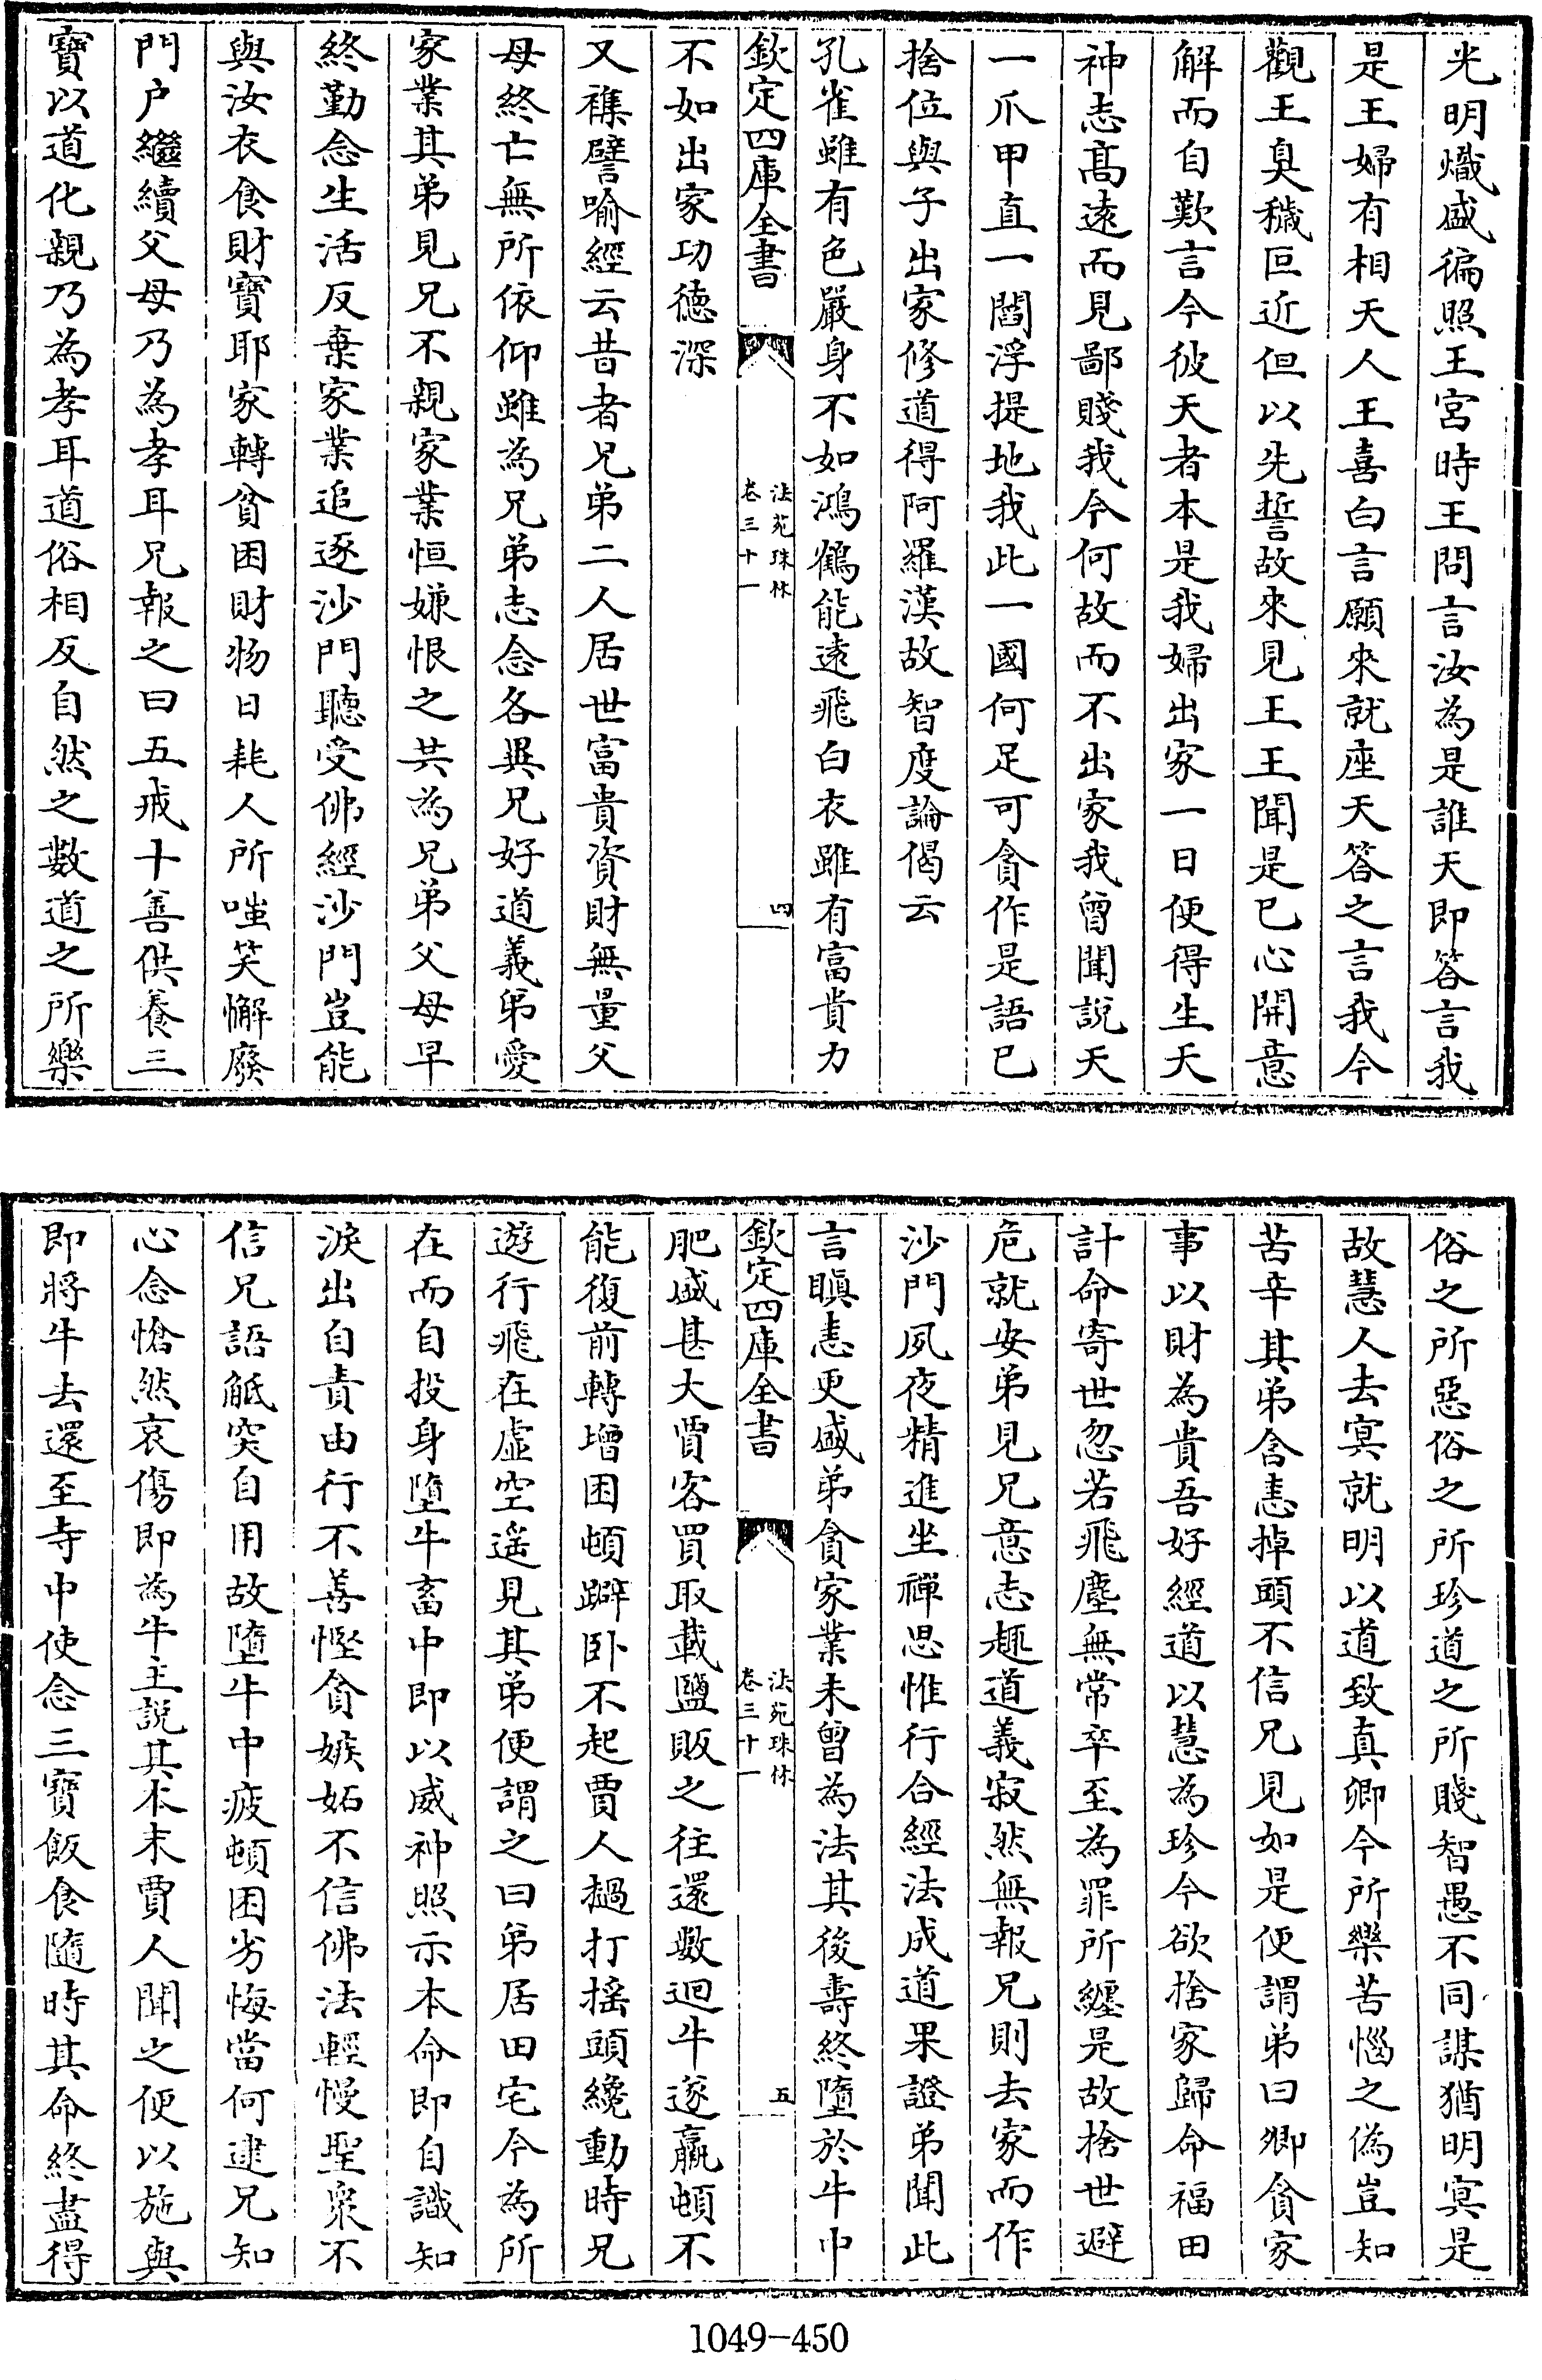 光明熾盛徧照王宮時王問言汝為是誰天即答言我
是王婦有相天人王喜白言願來就座天答之言我今
觀王臭穢叵近但以先誓故來見王王聞是已心開意
解而自歎言今彼天者本是我婦出家一日便得生天
神志高遠而見鄙賤我今何故而不出家我曾聞說天
一爪甲直一閻浮提地我此一國何足可貪作是語已
捨位與子出家修道得阿羅漢故智度論偈云
孔雀雖有色嚴身不如鴻鶴能遠飛白衣雖有富貴力
欽定四庫全書
法苑珠林
卷三十一
四
不如出家功德深
又雜譬喻經云昔者兄弟二人居世富貴資財無量父
母終亡無所依仰雖為兄弟志念各異兄好道義弟愛
家業其弟見兄不親家業恒嫌恨之共為兄弟父母早
終勤念生活反棄家業追逐沙門聽受佛經沙門豈能
與汝衣食財寶耶家轉貧困財物日耗人所嗤笑懈廢
門戶繼續父母乃為孝耳兄報之曰五戒十善供養三
寶以道化親乃為孝耳道俗相反自然之數道之所樂
俗之所惡俗之所珍道之所賤智愚不同謀猶明冥是
故慧人去冥就明以道致真卿今所樂苦惱之偽豈知
苦辛其弟含恚掉頭不信兄見如是便謂弟曰卿貪家
事以財為貴吾好經道以慧為珍今欲捨家歸命福田
計命寄世忽若飛塵無常卒至為罪所纏是故捨世避
危就安弟見兄意志趣道義寂然無報兄則去家而作
沙門夙夜精進坐禪思惟行合經法成道果證弟聞此
言瞋恚更盛弟貪家業未曾為法其後壽終墮於牛中
欽定四庫全書
法苑珠林
卷三十一
五
肥盛甚大賈客買取載鹽販之往還數迴牛遂羸頓不
能復前轉增困頓躃臥不起賈人撾打搖頭纔動時兄
遊行飛在虛空遙見其弟便謂之曰弟居田宅今為所
在而自投身墮牛畜中即以威神照示本命即自識知
淚出自責由行不善慳貪嫉妬不信佛法輕慢聖衆不
信兄語觝突自用故墮牛中疲頓困劣悔當何逮兄知
心念愴然哀傷即為牛主說其本末賈人聞之便以施與
即將牛去還至寺中使念三寶飯食隨時其命終盡得
1049-450